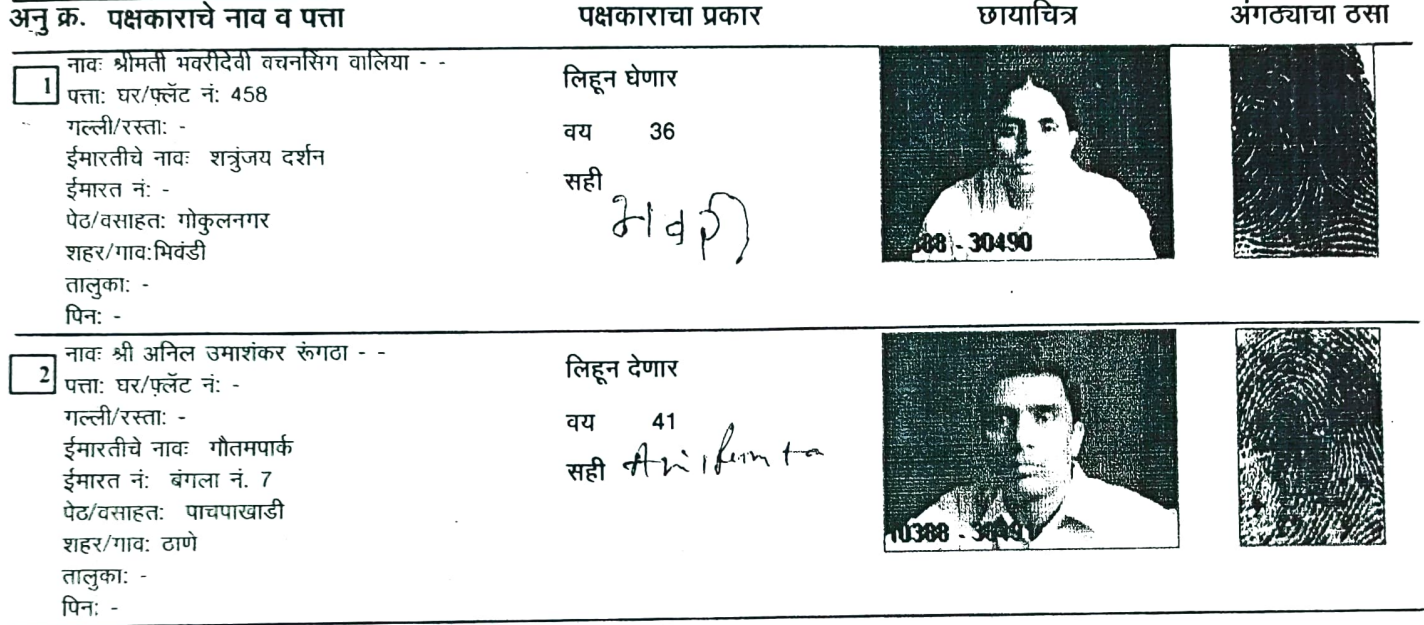 अनु क्र. पक्षकाराचे नाव व पत्ता पक्षकाराचा प्रकार छायाचित्र अंगठ्याचा ठसा
1 नावः श्रीमती भवरीदेवी वचनसिग वालिया - -
पत्ता: घर/फ्लॅट नं: 458
गल्ली/रस्ता: -
ईमारतीचे नावः शत्रुंजय दर्शन
ईमारत नं: -
पेठ/वसाहत: गोकुलनगर
शहर/गाव:भिवंडी
तालुका: -
पिन: -
लिहून घेणार
वय 36
सही
भवरी
88 - 30490
2 नावः श्री अनिल उमाशंकर रूंगठा - -
पत्ता: घर/फ्लॅट नं: -
गल्ली/रस्ता: -
ईमारतीचे नावः गौतमपार्क
ईमारत नं: बंगला नं. 7
पेठ/वसाहत: पाचपाखाडी
शहर/गाव: ठाणे
तालुका: -
पिन: -
लिहून देणार
वय 41
सही
10388 - 30491